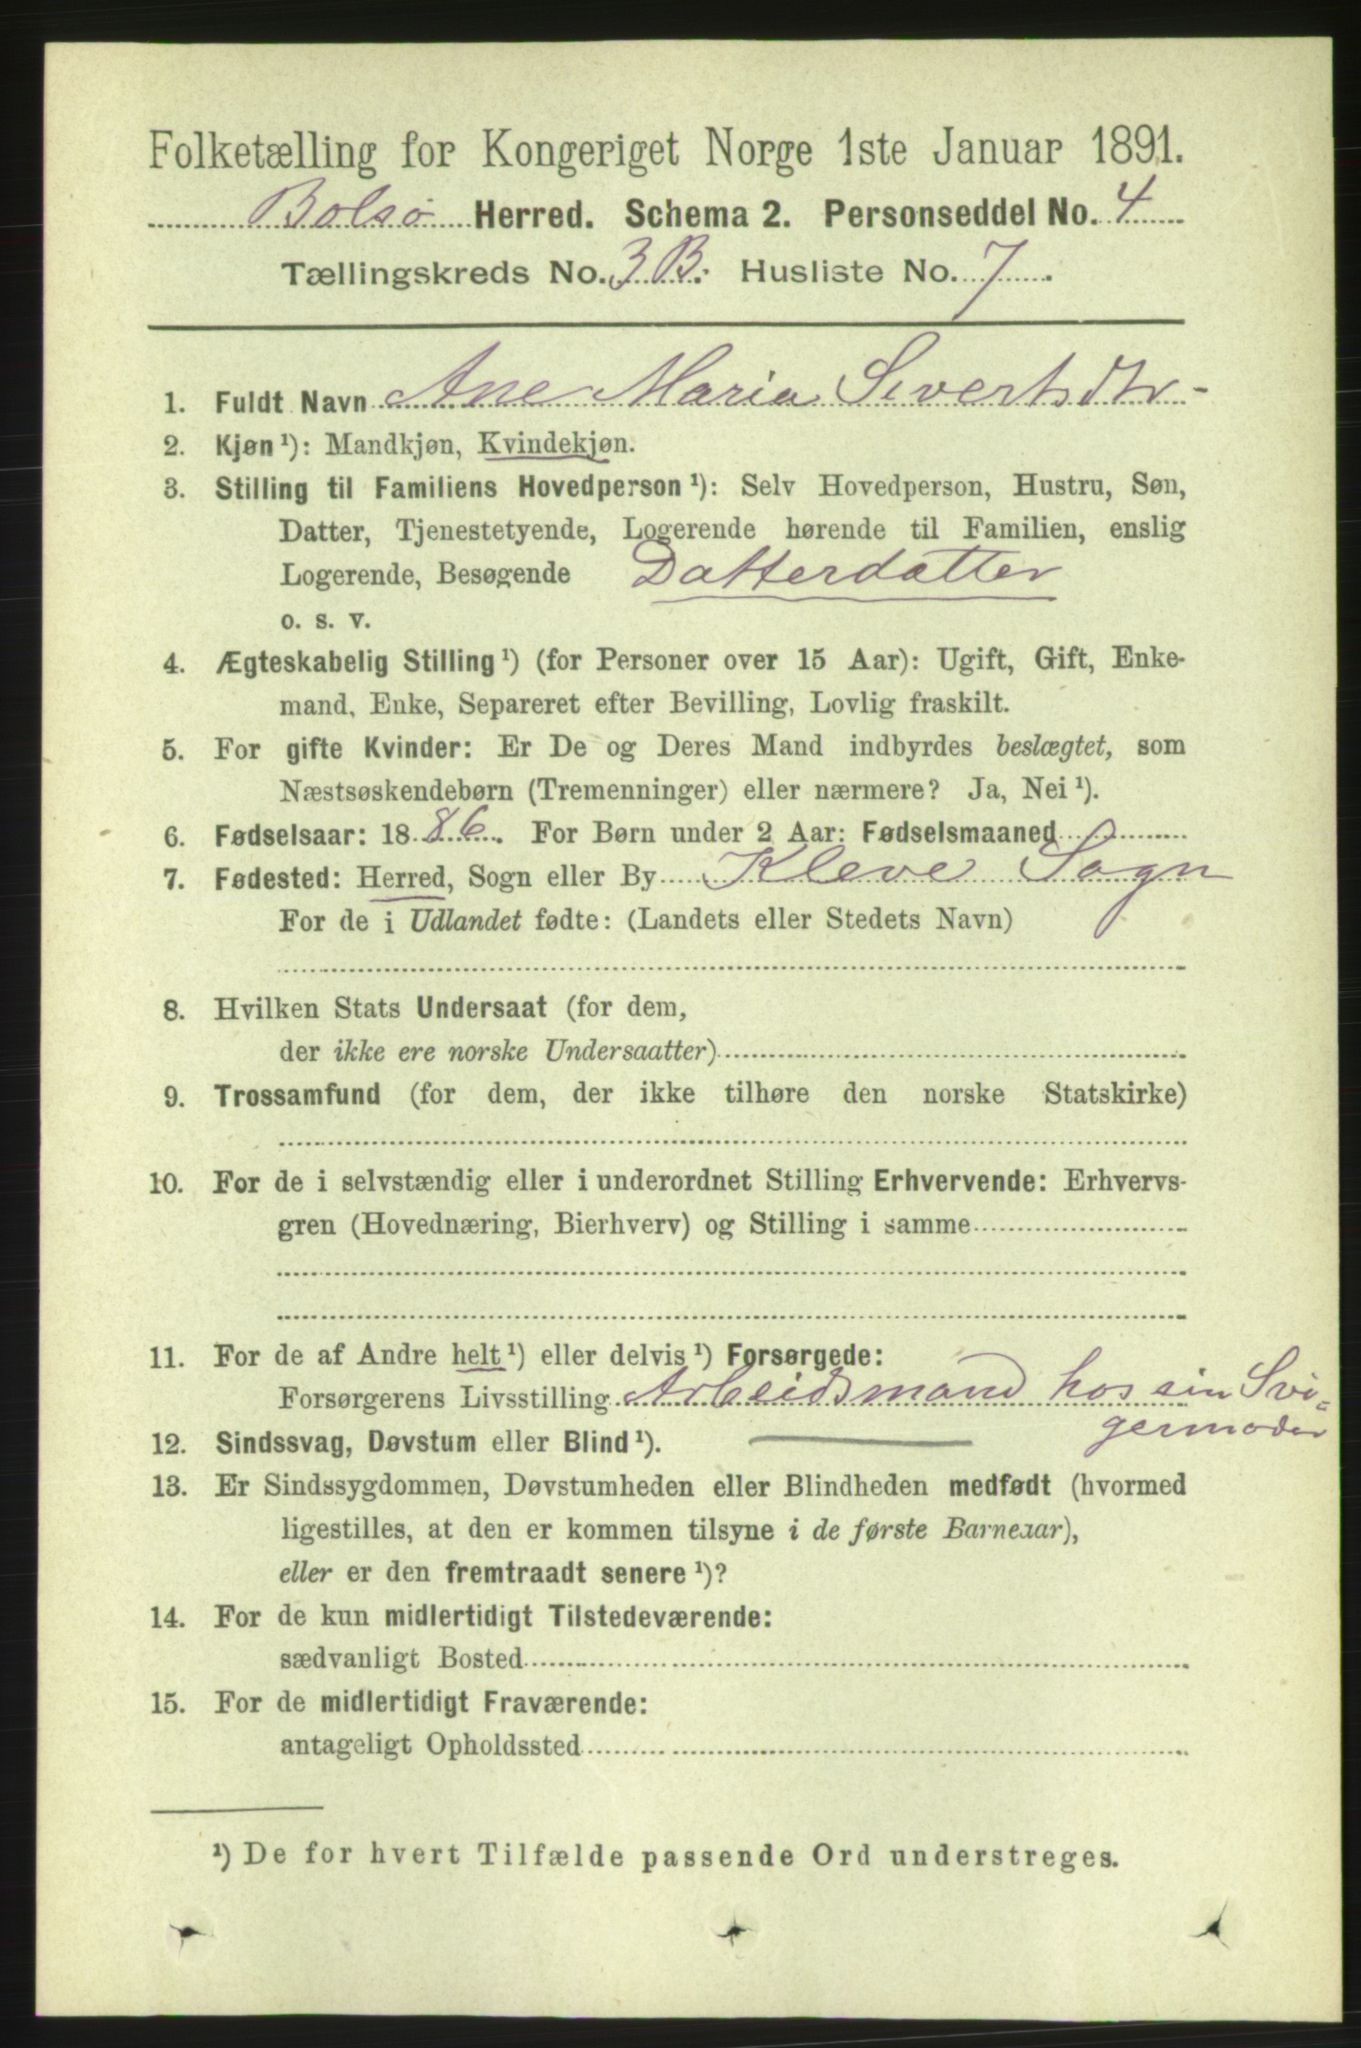 Folketælling for Kongeriget Norge 1ste Januar 1891.
Bolsø Herred. Schema 2. Personseddel No. 4
Tællingskreds No. 3 B. Husliste No. 7
1. Fuldt Navn Ane Maria Sivertsdtr -
2. Kjøn ¹): Mandkjøn, Kvindekjøn.
3. Stilling til Familiens Hovedperson ¹): Selv Hovedperson, Hustru, Søn,
Datter, Tjenestetyende, Logerende hørende til Familien, enslig
Logerende, Besøgende Datterdatter
o. s. v.
4. Ægteskabelig Stilling ¹) (for Personer over 15 Aar): Ugift, Gift, Enke-
mand, Enke, Separeret efter Bevilling, Lovlig fraskilt.
5. For gifte Kvinder: Er De og Deres Mand indbyrdes beslægtet, som
Næstsøskendebørn (Tremenninger) eller nærmere? Ja, Nei ¹).
6. Fødselsaar: 1886. For Børn under 2 Aar: Fødselsmaaned
7. Fødested: Herred, Sogn eller By Kleve Sogn
For de i Udlandet fødte: (Landets eller Stedets Navn)
8. Hvilken Stats Undersaat (for dem,
der ikke ere norske Undersaatter)
9. Trossamfund (for dem, der ikke tilhøre den norske Statskirke)
10. For de i selvstændig eller i underordnet Stilling Erhvervende: Erhvervs-
gren (Hovednæring, Bierhverv) og Stilling i samme
11. For de af Andre helt ¹) eller delvis ¹) Forsørgede:
Forsørgerens Livsstilling Arbeidsmand hos sin Svi-
germoder
12. Sindssvag, Døvstum eller Blind ¹).
13. Er Sindssygdommen, Døvstumheden eller Blindheden medfødt (hvormed
ligestilles, at den er kommen tilsyne i de første Barneaar),
eller er den fremtraadt senere ¹)?
14. For de kun midlertidigt Tilstedeværende:
sædvanligt Bosted
15. For de midlertidigt Fraværende:
antageligt Opholdssted
¹) De for hvert Tilfælde passende Ord understreges.